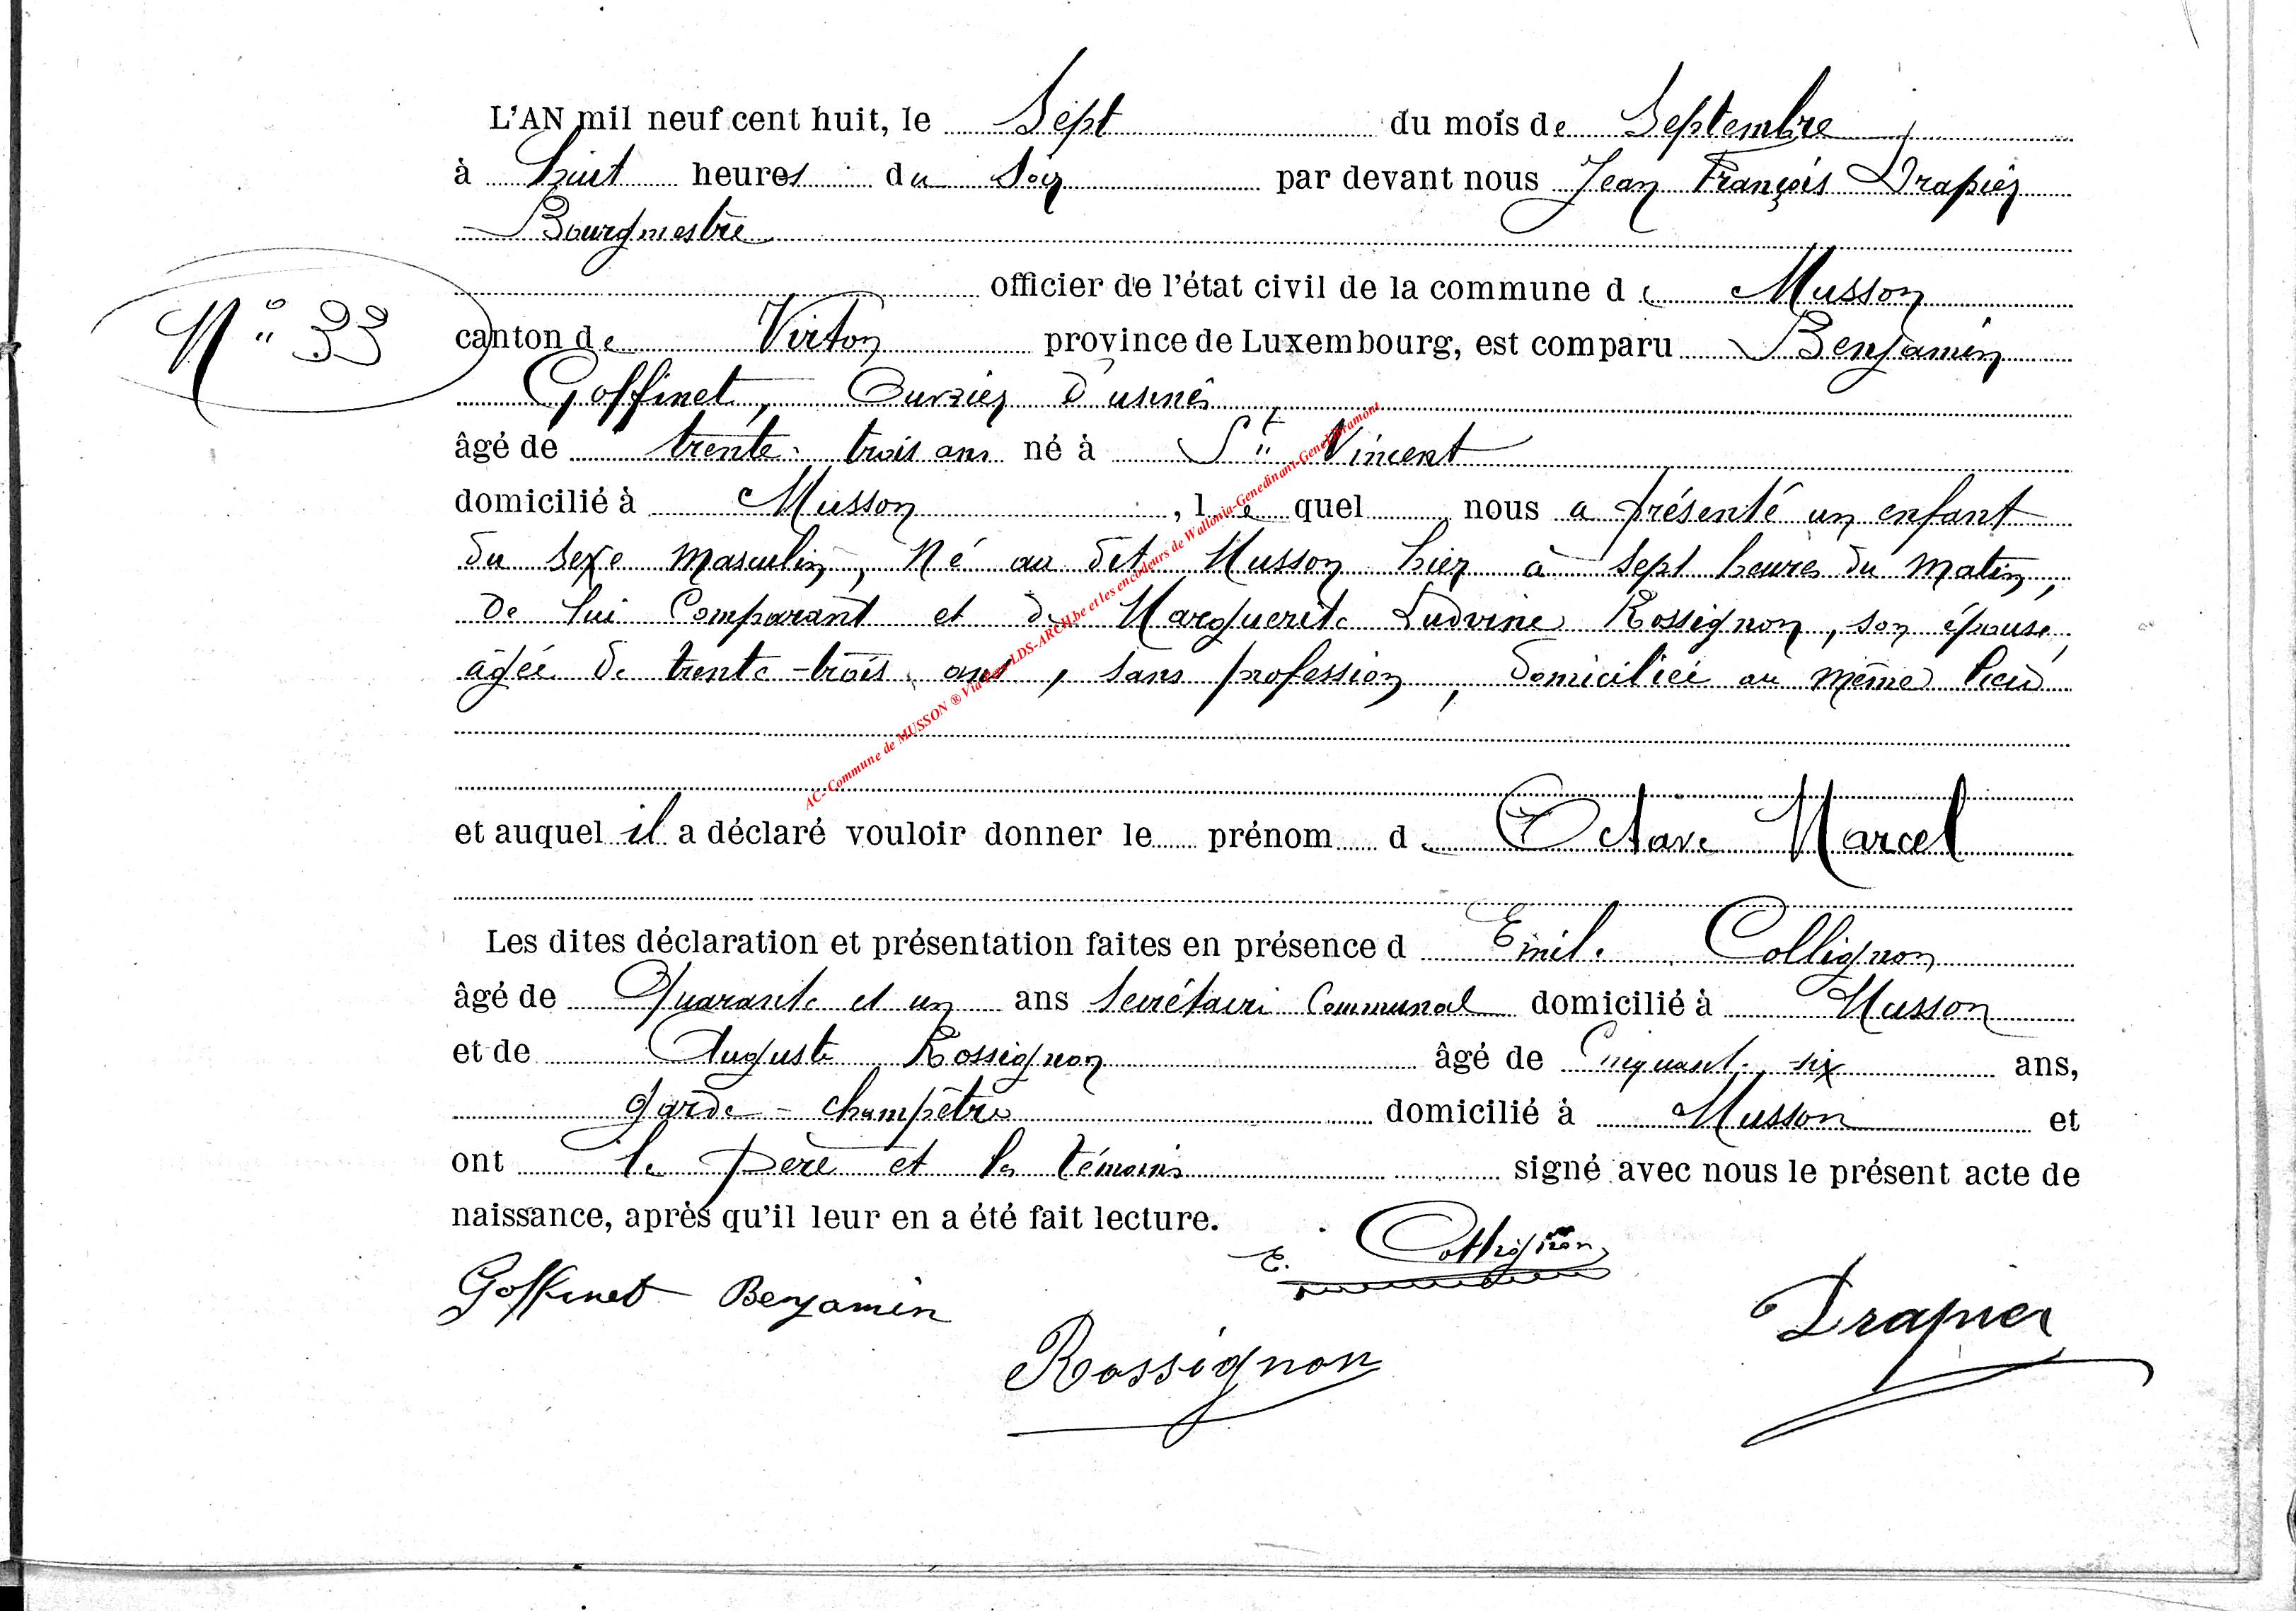 L'AN mil neuf cent huit, le Sept du mois de Septembre
à huit heures du Soir par devant nous Jean François Drapier
Bourgmestre
officier de l'état civil de la commune de Musson
N° 33
canton de Virton province de Luxembourg, est comparu Benjamin
Goffinet, Ouvrier d'usine
âgé de trente-trois ans né à St Vincent
domicilié à Musson, lequel nous a présenté un enfant
du sexe masculin, Né au dit Musson hier à sept heures du matin,
de lui Comparant et de Marguerite Ludvine Rossignon, son épouse,
agée de trente-trois ans, sans profession, domiciliée au même lieu
et auquel il a déclaré vouloir donner le prénom de Octave Marcel
Les dites déclaration et présentation faites en présence d Emile Collignon
âgé de Quarante et un ans Secrétaire Communal domicilié à Musson
et de Auguste Rossignon âgé de Cinquante-six ans,
garde-champêtre domicilié à Musson et
ont le père et les témoins signé avec nous le présent acte de
naissance, après qu'il leur en a été fait lecture.
E. Collignon
Goffinet Benjamin
Drapier
Rossignon
AC-Commune de MUSSON ® Via Par LDS-ARCH.be et les encodeurs de Wallonia-Genedinant-GeneLibramont